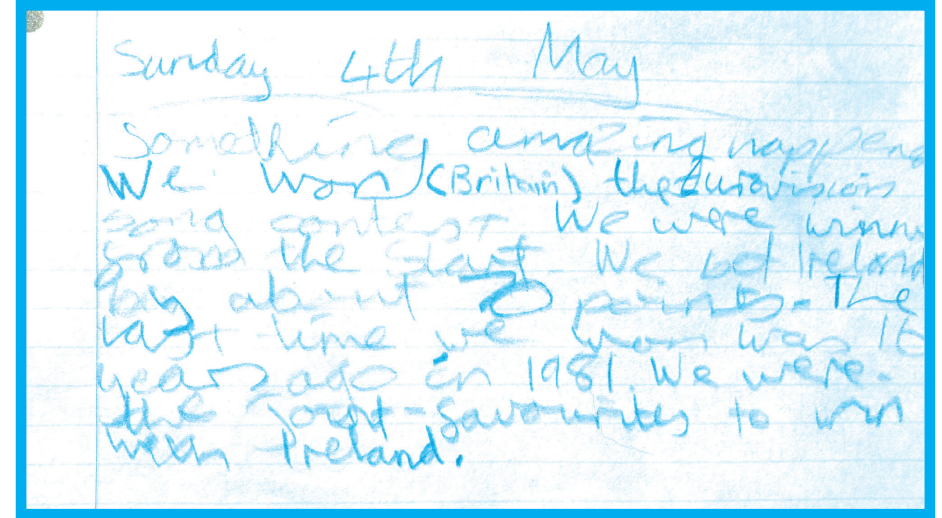 Sunday 4th May
Something amazing happened
We won (Britain) the Eurovision
song contest. We were winn
from the start. We bet Ireland
by about 70 points. The
last time we won was 16
years ago in 1981. We were.
the joint-favourites to win
with Ireland.